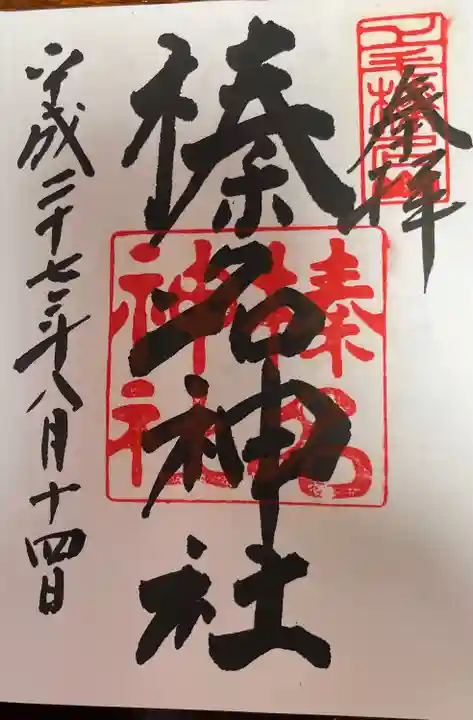 参拝
榛名神社
榛名
神社
平成二十七年八月十四日